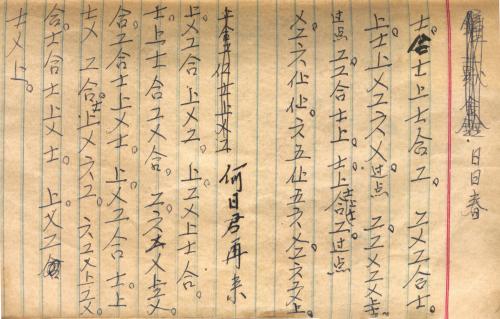 日日春
士。合士上士合工。工乂工合士。
上士上乂工六乂过点 工工乂工乂士。
过点 工工合士上。士上合工。过点
乂工六。仩仩六五仩五六乂工六工乂上。
何日君再来
上乂工合上乂工。上工乂上士合。
士上士合工乂合。工六五乂上工乂。
合工合士上乂士。上乂工合士上
士乂工合。上乂六工。六工乂上工乂。
合士合士上乂士。上乂工合
士乂上。